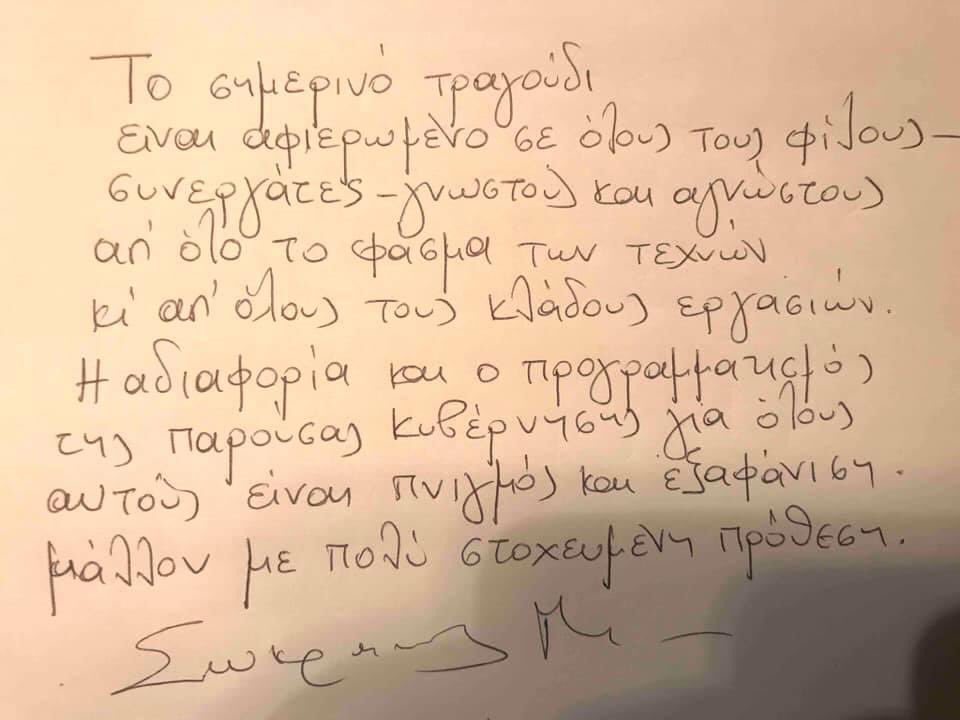 Το σημερινό τραγούδι
είναι αφιερωμένο σε όλους τους φίλους –
συνεργάτες – γνωστούς και αγνώστους
απ' όλο το φάσμα των τεχνών
κι απ' όλους τους κλάδους εργασιών.
Η αδιαφορία και ο προγραμματισμός
της παρούσας κυβέρνησης για όλους
αυτούς είναι πνιγμός και εξαφάνιση.
μάλλον με πολύ στοχευμένη πρόθεση.
Σωκράτης Μ –